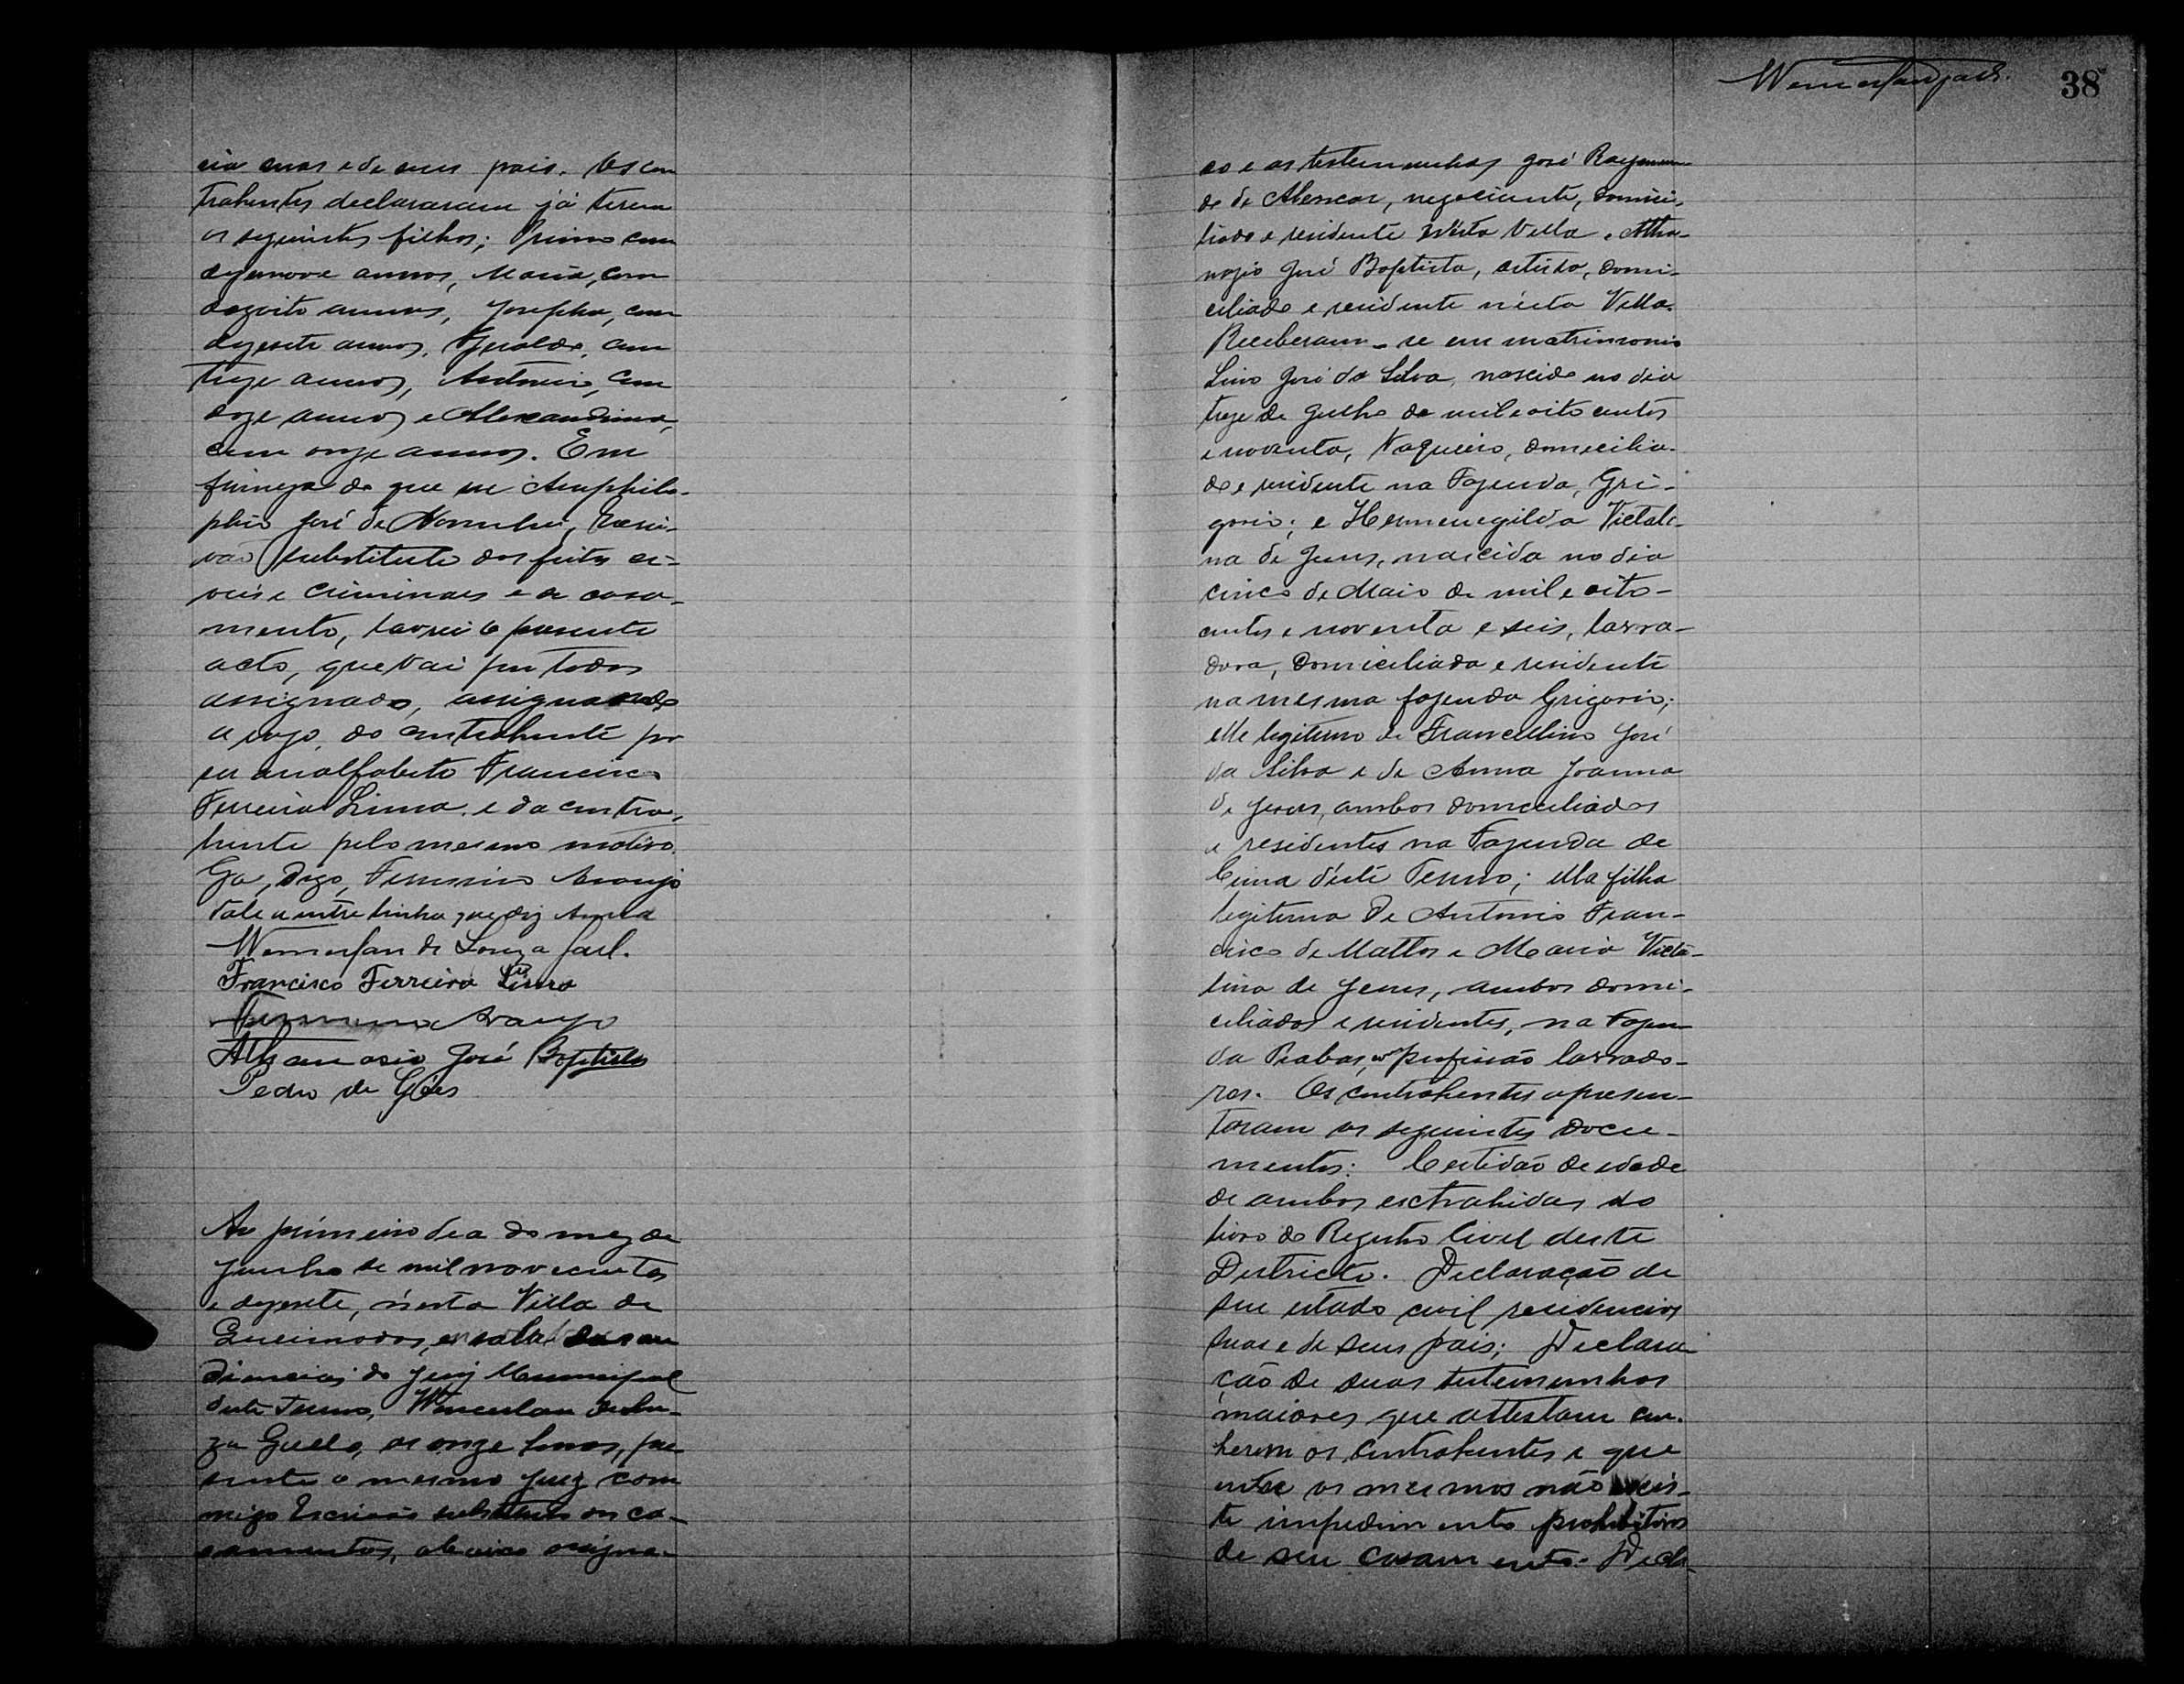 cia suas e de seus pais. Os con
trahentes declararam já terem
os seguintes filhos; Primo com
dezenove annos, Maria, com
dezoito annos, Josepha, com
dezesete annos, Geraldo, com
treze annos, Antonio, com
doze annos e Alexandrina,
com onze annos. Em
firmeza do que eu Amphilo-
phio José de Noronha, Escri-
vão substituto dos feitos ci-
veis e criminaes e de casa-
mento, lavrei o presente
acto, que vai por todos
assignado, assignando
a rogo do contrahente por
ser analfabeto Francisco
Ferreira Lima e da contra-
hente pelo mesmo motivo
Ga, digo, Firmino Araujo
Vale a entre linha que diz
Wenceslau de Souza
Francisco Ferreira Lima
Firmino Araujo
Athanasio José Baptista
Pedro de Góes
Ao primeiro dia do mez de
Junho de mil novecentos
e dezesete, n'esta Villa de
Queimadas, em sala das au
diencias do Juiz Municipal
deste Termo, Wenceslau de Sou-
za, as onze horas, pre
sente o mesmo Juiz com
migo Escrivão substituto dos ca-
samentos, abaixo assigna-
38
do e as testemunhas José Raymun
do de Alencar, negociante, domici-
liado e residente n'esta Villa e Atha-
nazio José Baptista, artista, domi-
ciliado e residente n'esta Villa.
Receberam-se em matrimonio
Lino José da Silva, nascido no dia
treze de Julho de mil oito centos
e noventa, Vaqueiro, domicilia-
do e residente na Fazenda, Gri-
gorio; e Hermenegilda Victali-
na de Jesus, nascida no dia
cinco de Maio de mil e oito-
centos e noventa e seis, lavra-
dora, domiciliada e residente
na mesma fazenda Grigorio;
elle legitimo de Francellino José
da Silva e de Anna Joanna
de Jesus, ambos domiciliados
e residentes na Fazenda de
Cima d'este Termo; ella filha
legitima de Antonio Fran-
cisco de Mattos e Maria Victa-
lina de Jesus, ambos domi-
ciliados e residentes, na Fazen
da Piabas, profissão lavrado-
res. Os contrahentes apresen-
taram os seguintes docu-
mentos: Certidão de edade
de ambos extrahidas do
livro do Registro Civil deste
Districto. Declaração de
seu estado civil residencias
suas e de seus pais; Declara
ção de duas testemunhas
maiores que attestam co-
nhecem os contrahentes e que
entre os mesmos não exis-
te impedimento prohibitivos
de seu casamento. Decla-